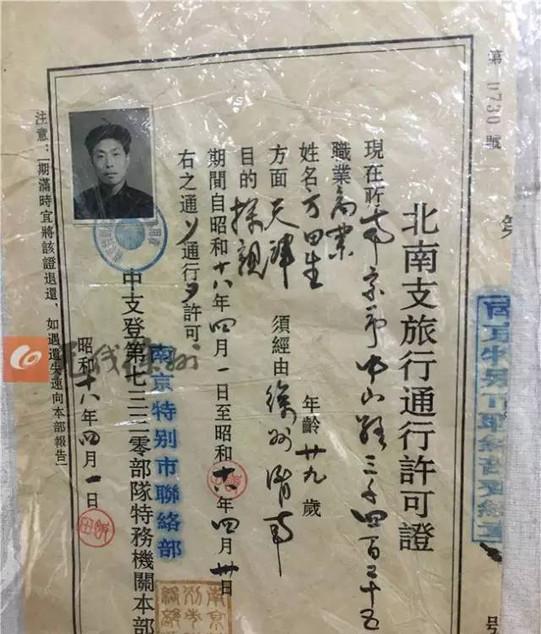 第0730號
北南支旅行通行許可證
現在所南京市中山路三千四百二十五号
職業商業
姓名万田生 年齡廿九歲
方面天津 須經由徐州濟南
目的探親
期間自昭和十八年四月一日至昭和十八年四月卅日
右之通リ通行ヲ許可
南京特別市聯絡部
中支登第七三三零部隊特務機關本部
昭和十八年四月一日
注意：一期滿時宜將該證退還，如遇遺失速向本部報告